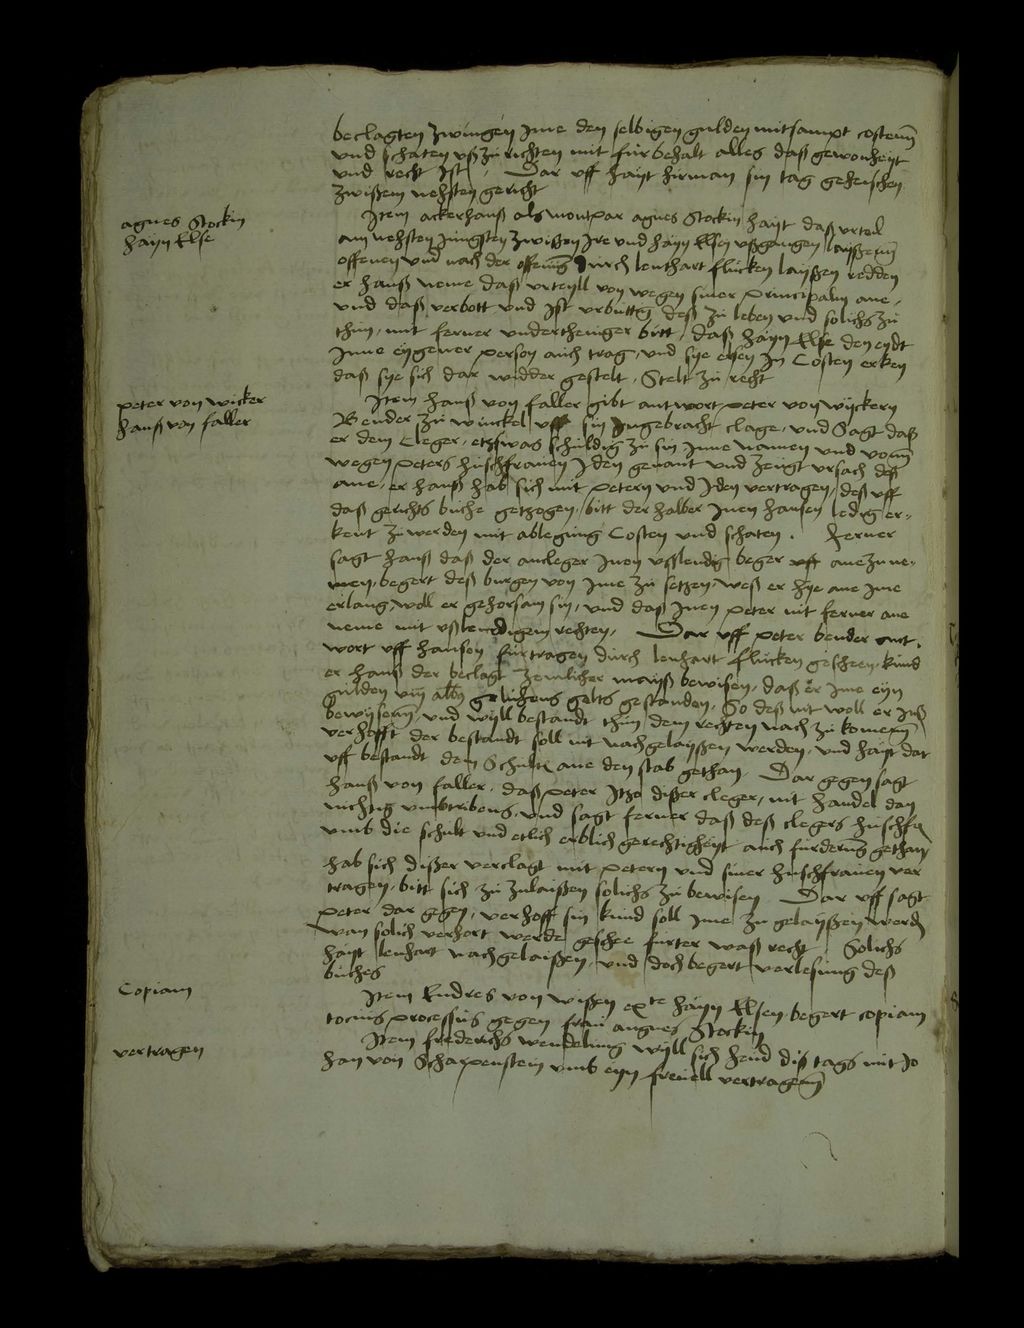 beclagten zwingen Ime den selbigen gulden mitsampt costenn
und schaten uß zu richten mit furbehalt alles daß gewonheyt
und recht Ist, Dar uff hayt hirman sin tag geheischen
zwissem nehsten gericht
agnes Stockin
hayn Else
Item ackerhanß als montpar agnes Stockin hayt daß urteil
am nehsten Jungsten zwissen Ire und hayn Elsen ußgangen laissenn
offenen und nach der offenung durch lenhart flucken layssen redden
er hanß neme daß urteyll von wegen siner principaln ane,
und daß verbott und Ist urbuttig deß zu leben und solichs zu
thun, mit ferner undertheniger bitt, daß hayn Else den eydt
Inne eygener person auch trag, und sye elsen In Costen erken
daß sye sich dar widder gestelt, Stelt zu recht
peter von wicker
hanß von faller
Item hanß von faller gibt antwort peter von wyckern
Bender zu winckel uff sin Ingebracht clage, und Sagt daß
er dem Cleger, etzwas schuldig zu sin Inne namen und vonn
wegen peters hußfrauen Iden genant und zeugt ursach deß
ane, er hanß hab sich mit petern und Iden vertragen, deß uff
daß gerichts buche gethogen, bitt der halber Inen hansen ledig er-
kent zu werden mit ablegung Costen und schaten. Ferner
sagt hanß daß der ancleger Inen ußlendig beger uff ane zu ne-
men, begert deß burgen von Ime zu setzen, weß er hye ane Ime
erlang woll er gehorsam sin, und daß Inen peter nit ferner ane
neme mit ußlendigem rechten, Dar uff peter bender ant-
wort uff hansen furtragen durch lenhart flucken gescheen, kund
er hanß der beclagt zemlicher mayß bewisen, daß er Ime eyn
gulden viij albus gelichens gelts gestanden, So deß nit woll er Inß
bewysenn, und wyll bestandt thun dem rechten nach zu komenn
verhofft der bestandt soll nit nachgelayssen werden, und hayt dar
uff bestandt dem Schulteß ane den stab gethan Dar gegen sagt
hanß von faller, daß peter Itzo disser cleger, nit handel dan
nichtig umbtribens, und sagt ferner daß deß clegers hußfr
umb die schult und etlich erblich gerechtigheyt auch furderung gethan
hab sich disser verclagt mit petern und siner hußfrauen ver
tragen, bitt sich zu zulaissen solichs zu bewisen Dar uff sagt
peter dar gegen, verhoff sin kund soll Ime zu gelayssen werden
wan solich verhort werde geschee furter waß recht, Solichs
hayt lenhart nachgelaissen, und doch begert verlesung deß
buches
Copiam
Item Endres von wissen ex te hayn Elsen begert copiam
tocius processus gegen frau angnes Stockin
vertragen
Item friderichs wendeling wyll sich hend diß tags mit Jo
han von Scharpenstein umb eyn frevell vertragenn